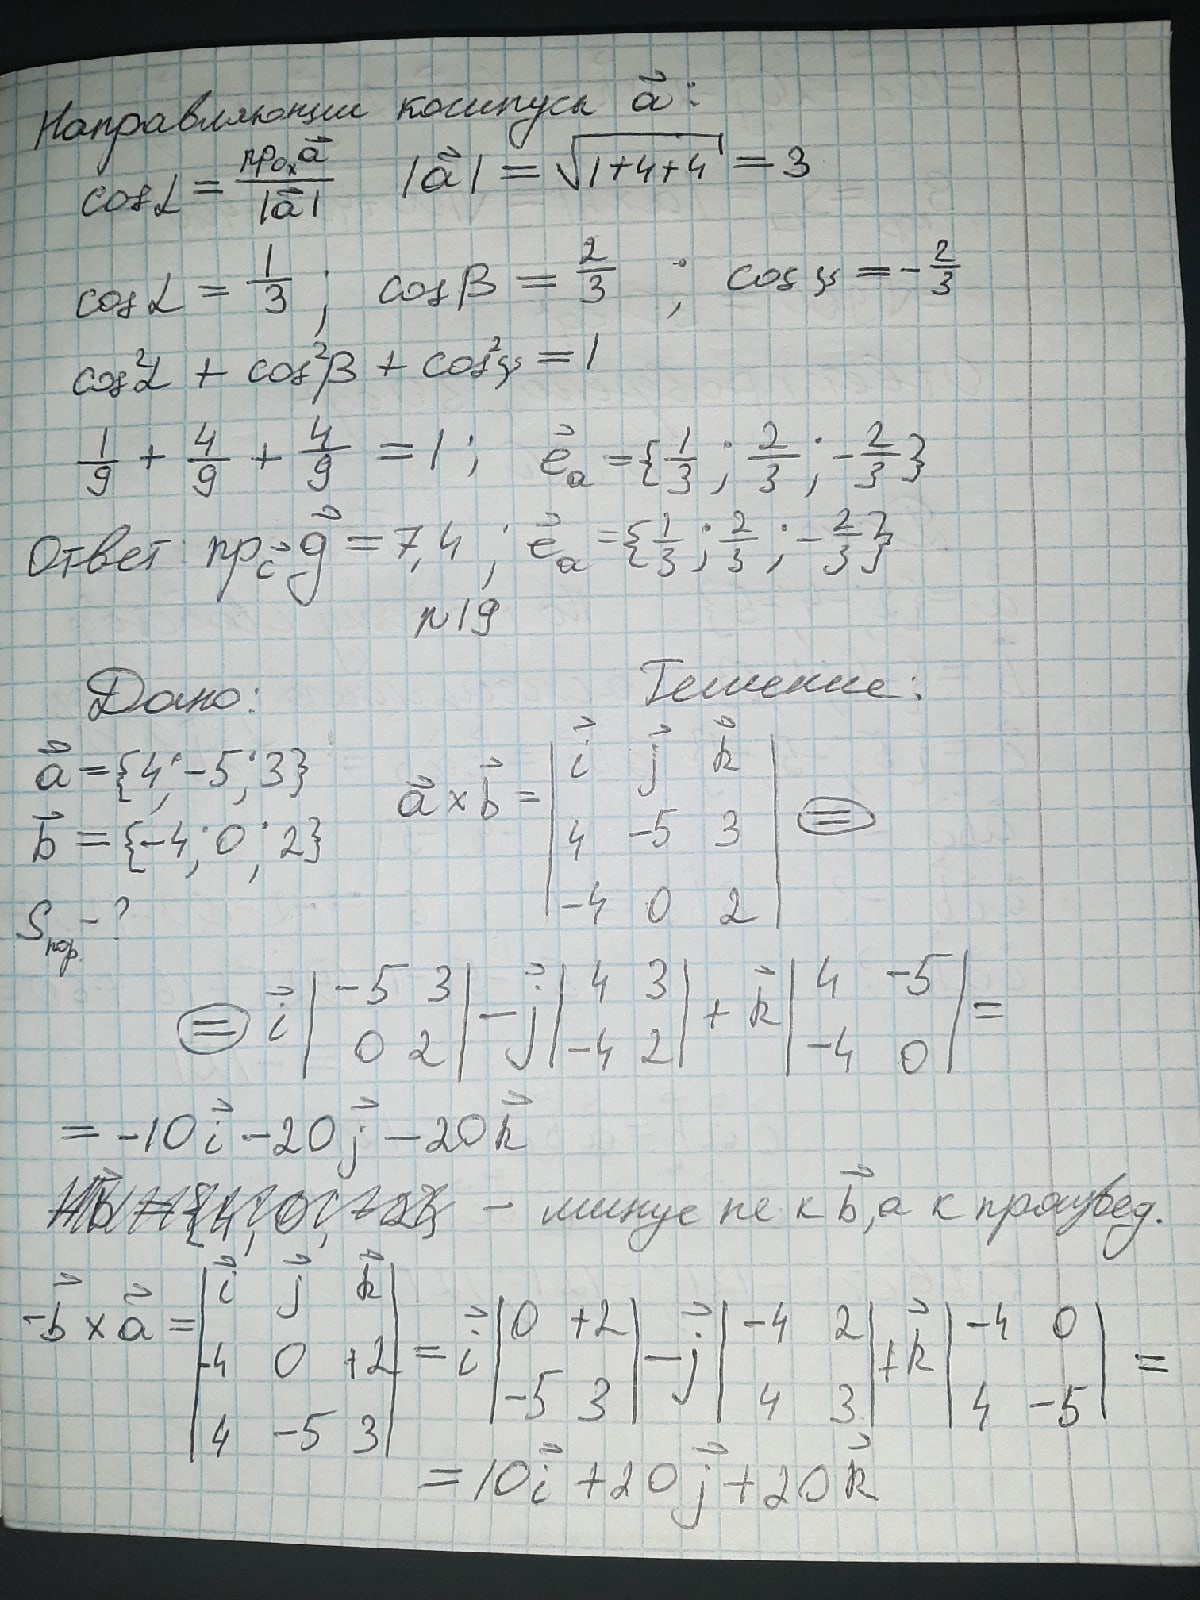 Направляющие косинусы a⃗:
cosα = пр₀ₓa⃗ / |a⃗|   |a⃗| = √(1+4+4) = 3
cosα = 1/3 ; cosβ = 2/3 ; cosγ = -2/3
cos²α + cos²β + cos²γ = 1
1/9 + 4/9 + 4/9 = 1 ; e⃗ₐ = {1/3 ; 2/3 ; -2/3}
Ответ: пр_c⃗ g⃗ = 7,4 ; e⃗ₐ = {1/3 ; 2/3 ; -2/3}
n19
Дано: Решение:
a⃗ = {4; -5; 3}
b⃗ = {-4; 0; 2}
Sпар. - ?
a⃗ × b⃗ = | i⃗ j⃗ k⃗ |
| 4 -5 3 | =
| -4 0 2 |
= i⃗ | -5 3 | - j⃗ | 4 3 | + k⃗ | 4 -5 | =
| 0 2 | | -4 2 | | -4 0 |
= -10i⃗ - 20j⃗ - 20k⃗
- минус не к b⃗, а к произвед.
-b⃗ × a⃗ = | i⃗ j⃗ k⃗ |
| -4 0 +2 | = i⃗ | 0 +2 | - j⃗ | -4 2 | + k⃗ | -4 0 | =
| 4 -5 3 | | -5 3 | | 4 3 | | 4 -5 |
= 10i⃗ + 20j⃗ + 20k⃗